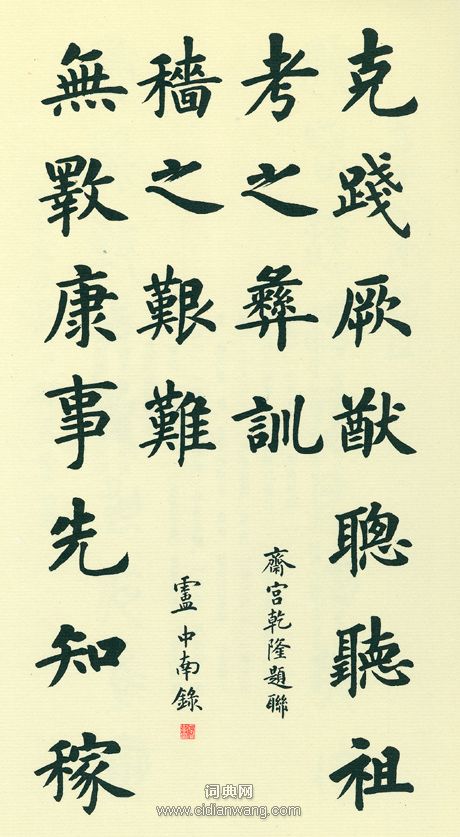 克踐厥猷聰聽祖
考之彝訓
齋宮乾隆題聯
無斁康事先知稼
穡之艱難
盧中南錄
词典网
www.cidianwang.com